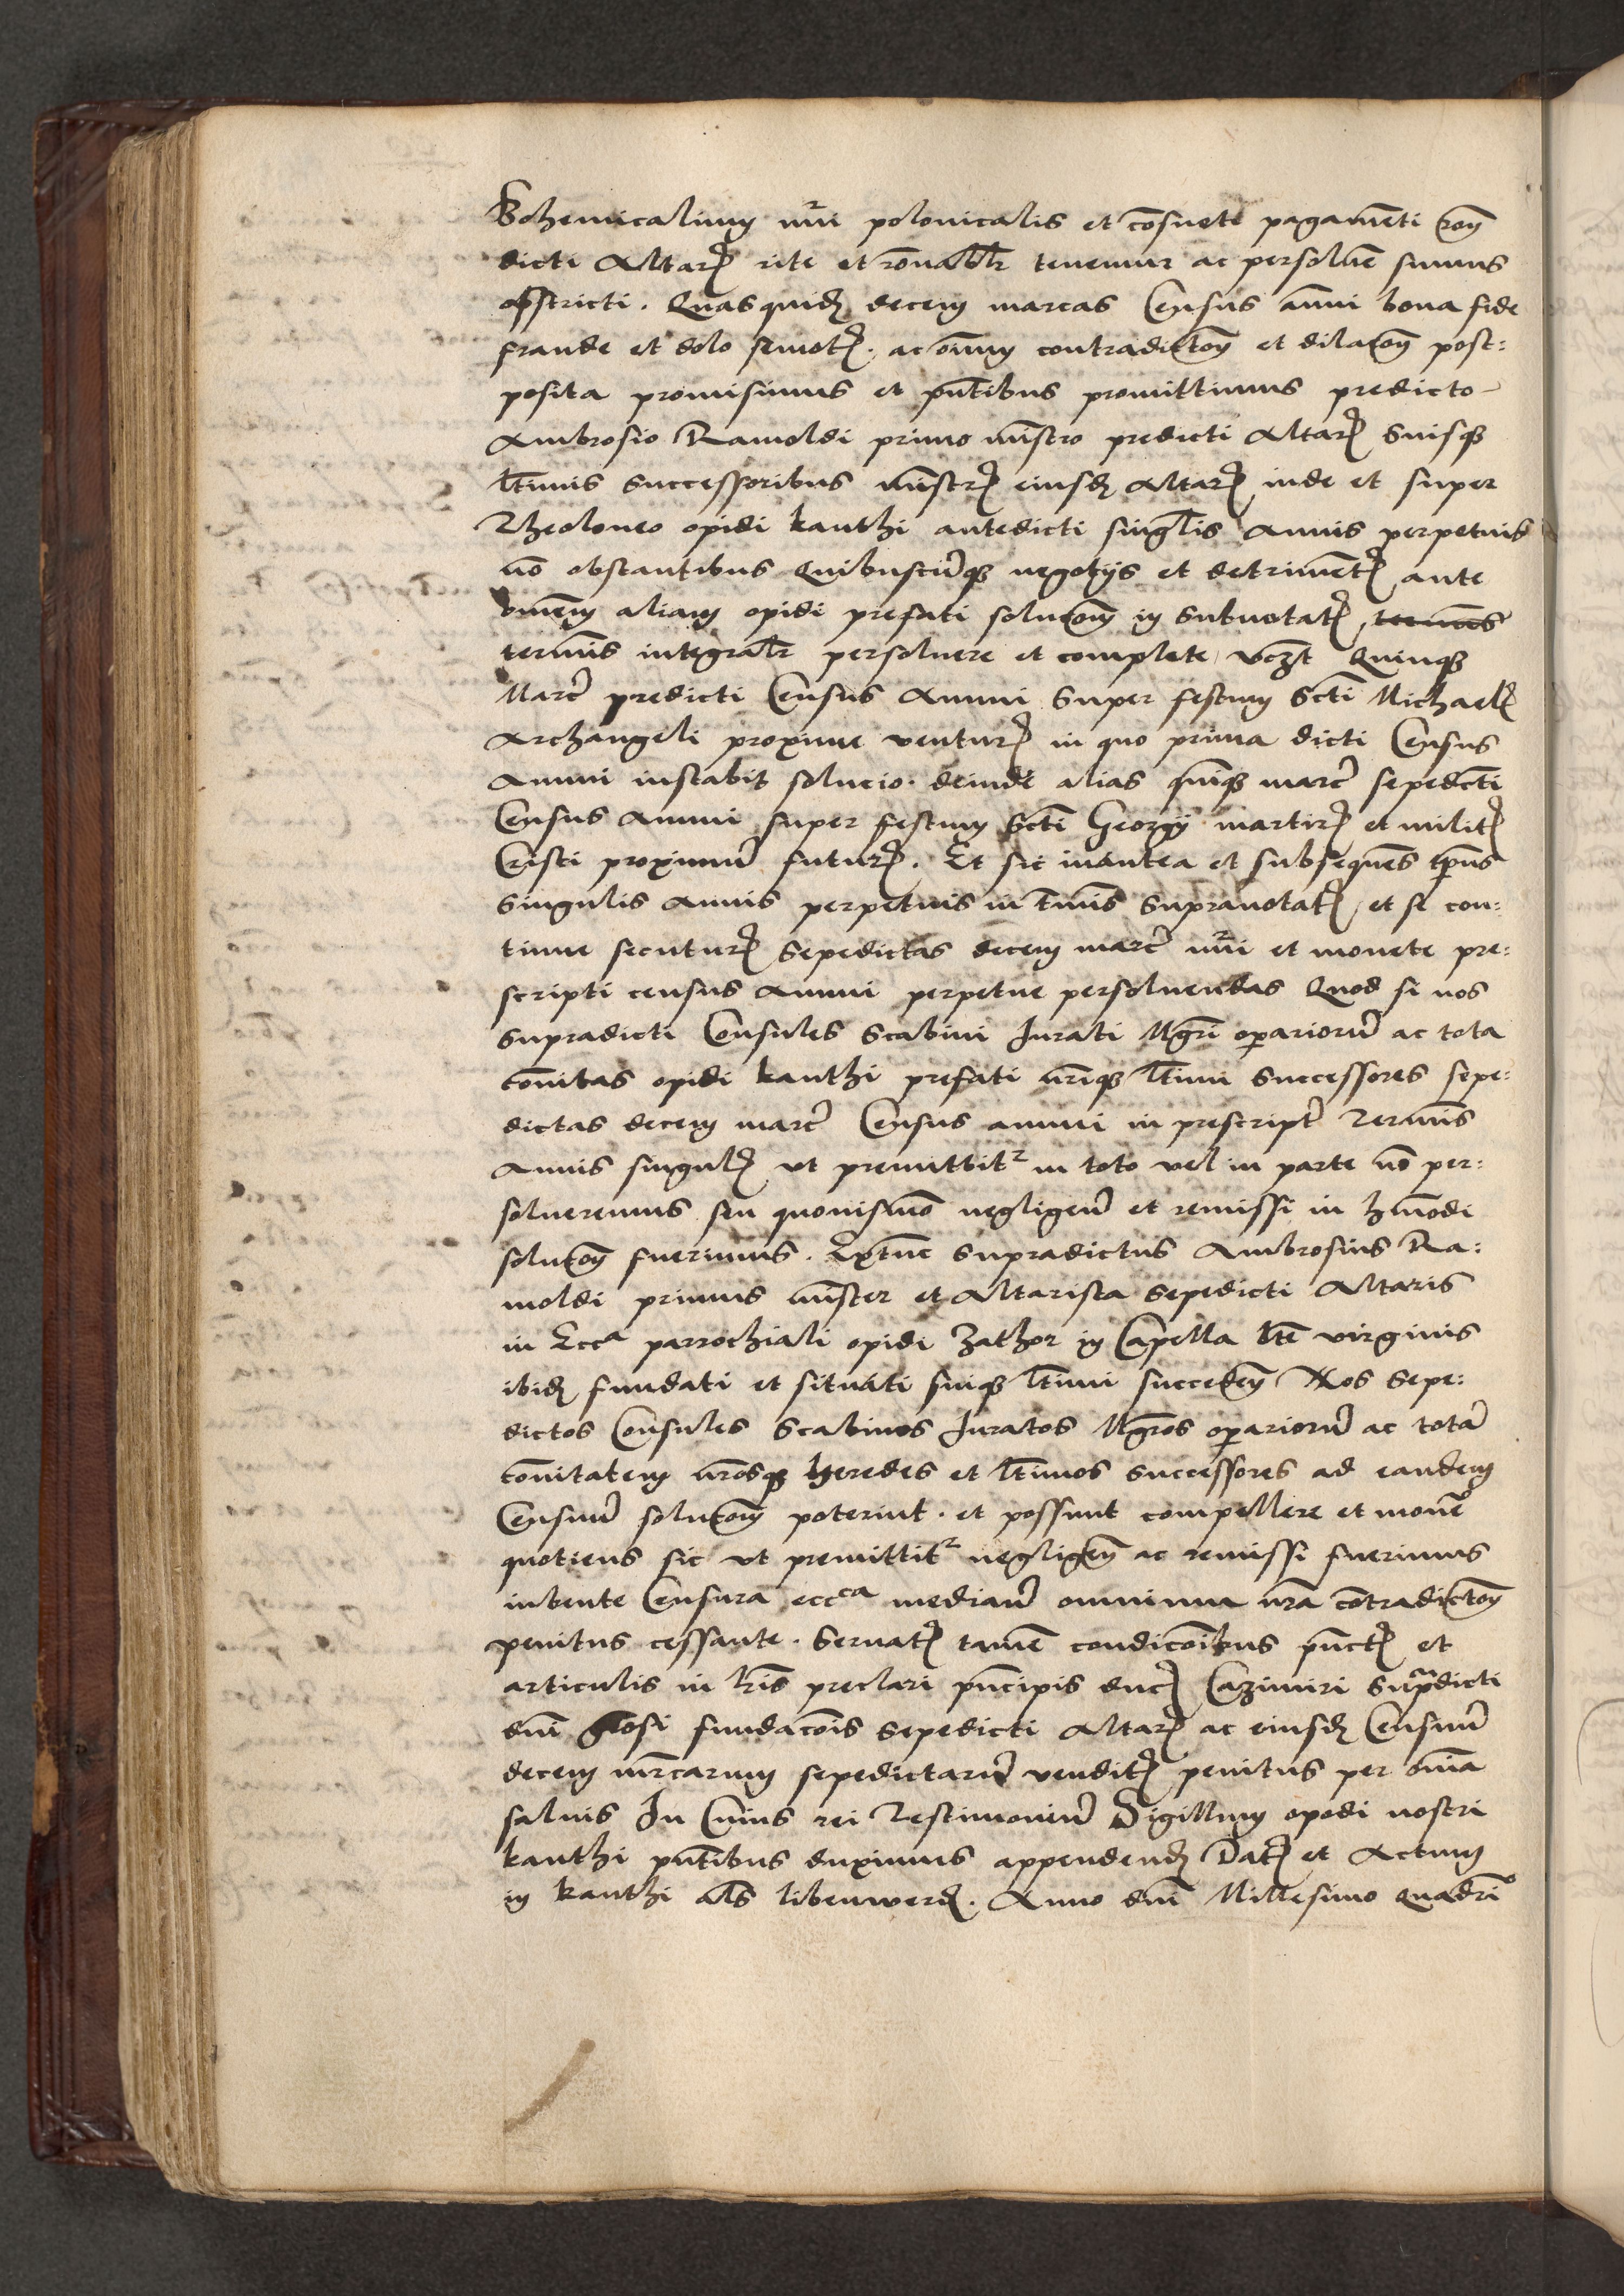 Bohemicalium nūi polonicalis et cōsuete pagamēti rōn
dicti Altarꝭ rite et rōnabłr tenemur ac persoluē sumus
obstricti. Quasquidꝫ decem marcas Census anni bona fide
fraude et dolo semotꝭ. ac oīnm contradictōn et dilacōn post:
posita promisimus et pn̄tibus promittimus predicto
Ambrosio Ramoldi primo mīstro predicti Altarꝭ suisqꝫ
ltīmis successoribus mīstrꝭ eiusdꝫ Altarꝭ inde et super
Theoloneo opidi kanthi antedicti singl̄is Annis perpetuis
nō obstantibus Quibuscūqꝫ negotijs et detrimētꝭ ante
omnēm aliam opidi prefati solucōnm in subnotatꝭ termīs
termīs integralr̄ persoluere et complete vczt Quinqꝫ
Marc̄ predicti Census Annui super festum Scti Michaelꝭ
Archangeli proxime venturꝭ in quo prima dicti Census
Annui instabit solucio. deinde alias quīqꝫ marc̄ sepedcti
Census Annui super festum Scti Georgij martirꝭ et militꝭ
Cristi proximū futurꝭ. Et sic inantea et subsequēs tp̄us
Singulis Annis perpetuis in tmīs supranotatꝭ et se con:
tinue secuturꝭ sepedictas decem marc̄ nūi et monete pre:
scripti census Annui perpetue persoluendas Quod si nos
supradicti Consules Scabini Jurati Mgrī opariorū ac tota
cōnitas opidi kanthi prefati nr̄iqꝫ ltīmi successores sepe:
dictas decem marc̄ Census annui in prescriptꝭ Termīs
Annis singulꝭ vt premittitr in toto vel in parte nō per:
solueremus seu quouismō negligen̄ et remissi in hmōdi
solucōn fuerimus. Extūc supradictus Ambrosius Ra:
moldi primus mīster et Altarista sepedicti Altaris
in Ecca parrochiali opidi Zathor in Capella bte virginis
ibidꝫ fundati et situati suiqꝫ ltīmi succeden̄ Nos sepe:
dictos Consules Scabinos Juratos Mgrōs opariorū ac totā
cōnitatem nr̄osqꝫ heredes et ltīmos successores ad eandem
Censuū solucōnm poterint. et possunt compellere et monē
quotiens sic vt premittitr negligen̄ ac remissi fuerimus
iubente Censura eccca median̄ omnimoda nr̄a contradictōn
penitus cessante. Seruatꝭ tamē condicōibus pūctꝭ et
articulis in lrīs preclari prīcipis ducꝭ Cazimiri supradicti
dnī glosi fundacōis sepedicti Altarꝭ ac eiusdꝫ Censuū
decem mrcarum sepedictarū venditꝭ penitus per oīnia
saluis In Cuius rei Testimoniū Sigillum opodi nostri
kanthi pn̄tibus duximus appendendꝫ Datꝭ et Actum
in kanthi als libenwerdꝭ. Anno dnī Millesimo Quadrī